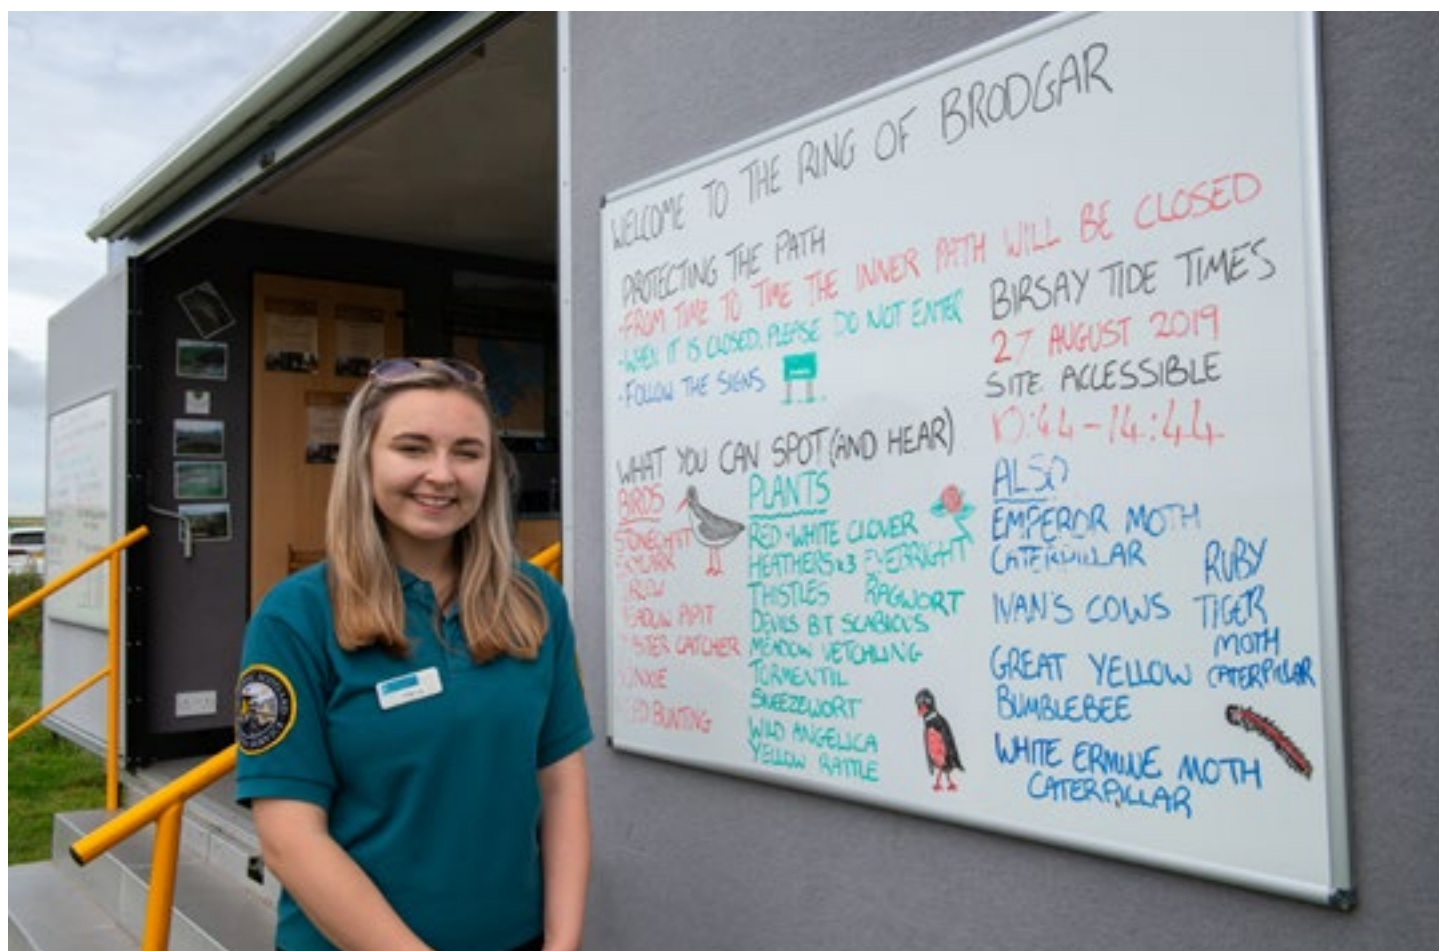 WELCOME TO THE RING OF BRODGAR
PROTECTING THE PATH
-FROM TIME TO TIME THE INNER PATH WILL BE CLOSED
-WHEN IT IS CLOSED, PLEASE DO NOT ENTER
-FOLLOW THE SIGNS
BIRSAY TIDE TIMES
27 AUGUST 2019
SITE ACCESSIBLE
10:44-14:44
WHAT YOU CAN SPOT (AND HEAR)
BIRDS
STONECHAT
PIPIT
CATCHER
BUNTING
PLANTS
RED+WHITE CLOVER
HEATHERS x3 EYEBRIGHT
THISTLES RAGWORT
DEVILS BIT SCABIOUS
MEADOW VETCHLING
TORMENTIL
SNEEZEWORT
WILD ANGELICA
YELLOW RATTLE
ALSO
EMPEROR MOTH
CATERPILLAR
IVAN'S COWS
GREAT YELLOW
BUMBLEBEE
WHITE ERMINE MOTH
CATERPILLAR
RUBY
TIGER
MOTH
CATERPILLAR